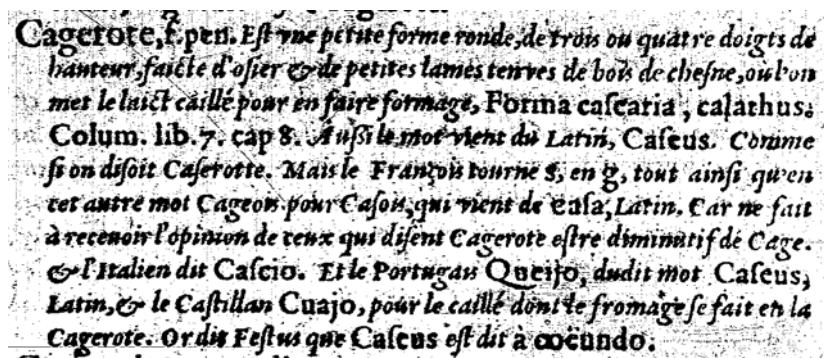 Cagerote, f. pen. Eſt vne petite forme ronde, de trois ou quatre doigts de
hauteur, faicte d'oſier & de petites lames tenves de bois de cheſne, ou l'on
met le laict caillé pour en faire formage, Forma caſearia, calathus.
Colum. lib. 7. cap 8. Auſſi le mot vient du Latin, Caſeus. Comme
ſi on diſoit Caſerotte. Mais le François tourne S, en g, tout ainſi qu'en
cet autre mot Cageon pour Caſon, qui vient de caſa, Latin. Car ne fait
à recevoir l'opinion de ceux qui diſent Cagerote eſtre diminutif de Cage.
& l'Italien dit Caſcio. Et le Portugais Queijo, dudit mot Caſeus,
Latin, & le Caſtillan Cuajo, pour le caillé dont le fromage ſe fait en la
Cagerote. Or dit Feſtus que Caſeus eſt dit à coëundo.